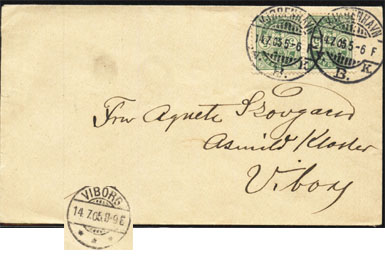 KJØBENHAVN KJØBENHAVN
14.7.05 5-6 14.7.05 5-6 F
B. B. K.
Fru Agnete Skovgaard
Asmild Kloster
Viborg
VIBORG
14.7.05.8-9 E